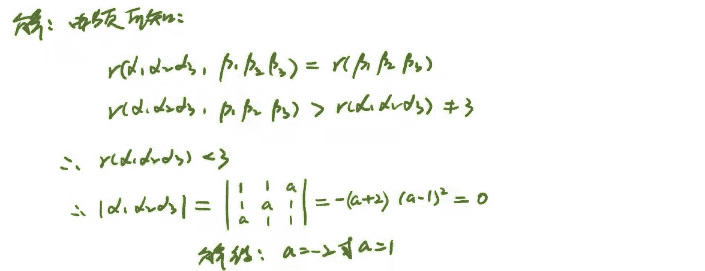 解：由题可知：
r(α₁α₂α₃, β₁β₂β₃) = r(β₁β₂β₃)
r(α₁α₂α₃, β₁β₂β₃) > r(α₁α₂α₃) ≠ 3
∴ r(α₁α₂α₃) < 3
∴ |α₁α₂α₃| = |1 1 a; 1 a 1; a 1 1| = -(a+2)(a-1)² = 0
解得：a=-2或a=1